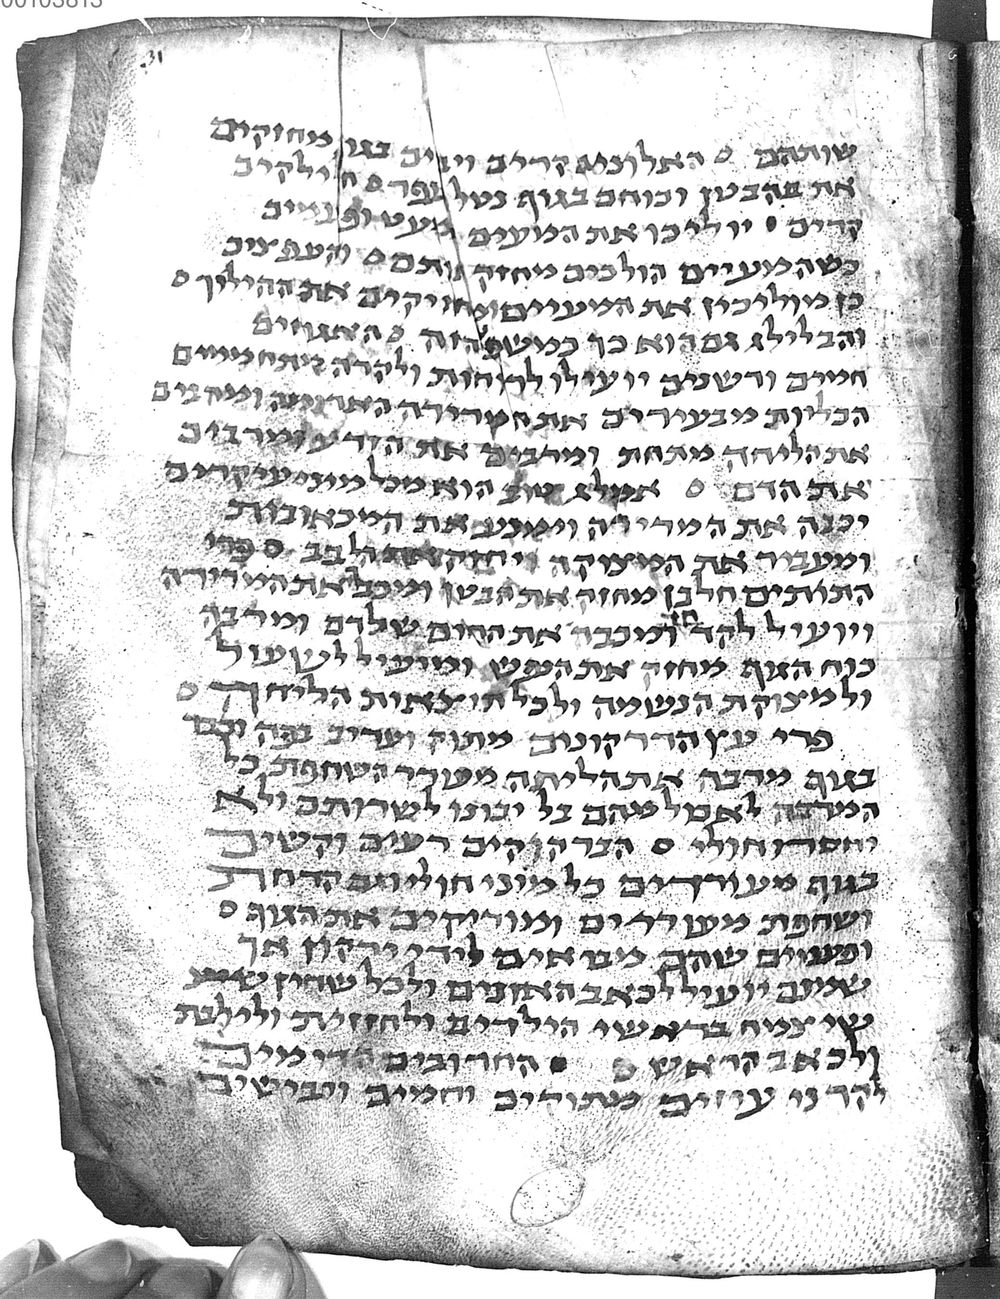 00103813
31
שותהם ס האלונים קרים ויבים בגוף מחזקים
את הבטן וכוחם בגוף נטל עפר ס חילקים
קרים ס יוליכו את המעים מעט ופעמים
כשהמעיים הולכים מחזק אותם ס והעפצים
כן מוליכין את המעיים ומחזיקים את ההילוך ס
והבלילג גם הוא כך כמשפט הזה ס האגוזים
חמים ודשנים יועילו לרוחות ולקרה מתחממים
הכליות מבעירים את המרירה האדומה ומרבים
את הליחה מתחת ומרבים את הזרע ומרבים
את הדם ס אמלג טוב הוא מכל מיני עיקרים
יכבה את המרירה וימנע את המכאובות
ומעביר את המצוקה יחזק את הלבב ס פרי
התותים חלבן מחזק את הבטן ומכבה את המרירה
ויועיל לקדחת ומכבה את החום של דם ומרבה
כוח הגוף מחזק את העש ומועיל לשעול
ולמצוקת הנשמה ולכל תוצאות הליחה ס
פרי עץ הדרקונים מתוק וערב בפה וגם
בגוף מרבה את הליחה מעורר השחפת כל
המרבה לאכל מהם בל יבוזו לשרותם ולא
יחסרו חולי ס הברקוקים רעים וקשים
בגוף מעוררים כל מיני חולי וגם הדחת
ושחפת מעוררים ומוריקים את הגוף ס
ופעמים שהם מביאים לידי ירקון אך
שמנם יועיל לכאב האזנים ולכל שחין
שיצמח בראשי הילדים ולחזזית ולילפת
ולכאב הראש ס ס החרובים
לקרני עיזים מתוקים וחמים ויבישים